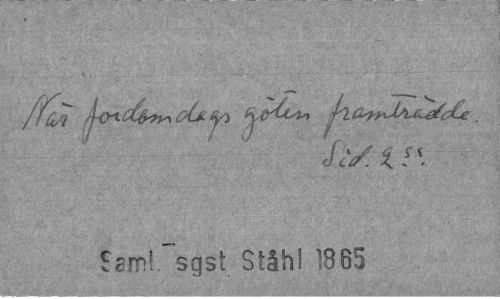 När fordomdags göten framträdde.
Sid. 2
Saml. sgst Ståhl 1865